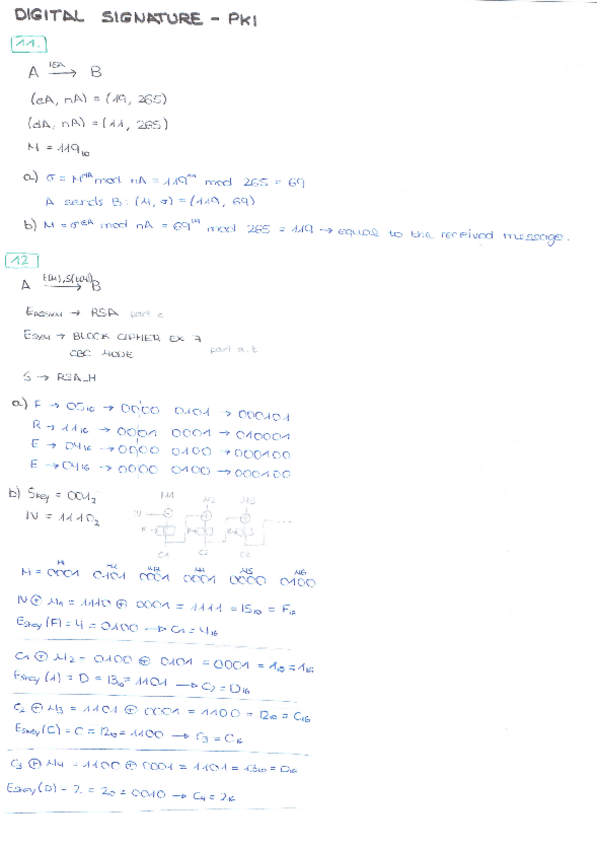 DIGITAL SIGNATURE - PKI
11.
A RSA→ B
(eA, nA) = (19, 265)
(dA, nA) = (11, 265)
M = 119₁₀
a) σ = M^dA mod nA = 119¹¹ mod 265 = 69
A sends B: (M, σ) = (119, 69)
b) M = σ^eA mod nA = 69¹⁹ mod 265 = 119 → equal to the received message.
12
A → B
→ RSA part c
ESYM → BLOCK CIPHER EX 7
CBC MODE part a, b
S → RSA_H
a) F → 05₁₆ → 0000 0101 → 000101
R → 11₁₆ → 0001 0001 → 010001
E → 04₁₆ → 0000 0100 → 000100
E → 04₁₆ → 0000 0100 → 000100
b) Skey = 001₂
IV = 1110₂
M1 M2 M3
IV
C1 C2 C3
M1 M2 M3 M4 M5 M6
M = 0001 0101 0001 0001 0000 0100
IV ⊕ M1 = 1110 ⊕ 0001 = 1111 = 15₁₀ = F₁₆
Eskey (F) = 4 = 0100 → C1 = 4₁₆
C1 ⊕ M2 = 0100 ⊕ 0101 = 0001 = 1₁₀ = 1₁₆
Eskey (1) = D = 13₁₀ = 1101 → C2 = D₁₆
C2 ⊕ M3 = 1101 ⊕ 0001 = 1100 = 12₁₀ = C₁₆
Eskey (C) = C = 12₁₀ = 1100 → C3 = C₁₆
C3 ⊕ M4 = 1100 ⊕ 0001 = 1101 = 13₁₀ = D₁₆
Eskey (D) = 2 = 2₁₀ = 0010 → C4 = 2₁₆